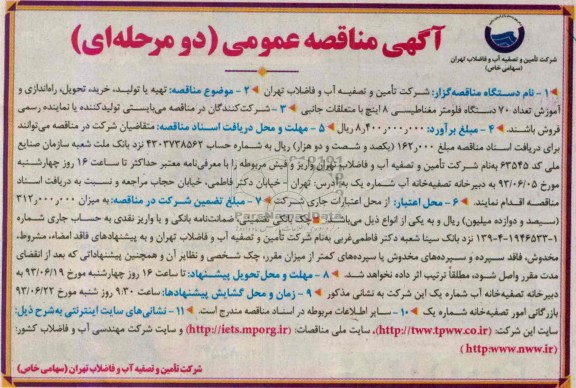 شرکت تأمین و تصفیه آب و فاضلاب تهران
(سهامی خاص)
آگهی مناقصه عمومی (دو مرحله‌ای)
۱- نام دستگاه مناقصه‌گزار: شرکت تأمین و تصفیـه آب و فاضلاب تهران ۲- موضوع مناقصه: تهیه یا تولیـد، خرید، تحویل، راه‌اندازی و
آموزش تعداد ۷۰ دستگاه فلومتر مغناطیسی ۸ اینچ با متعلقات جانبی ۳- شرکت‌کنندگان در مناقصه می‌بایستی تولیدکننده یا نماینده رسمی
فروش باشند. ۴- مبلغ برآورد: ۸٫۴۰۰٫۰۰۰٫۰۰۰ ریال ۵- مهلت و محل دریافت اسناد مناقصه: متقاضیان شرکت در مناقصه می‌توانند
برای دریافت اسناد مناقصه مبلغ ۱۶۲٫۰۰۰ (یکصد و شصت و دو هزار) ریال به شماره حساب ۴۳۰۳۷۳۸۵۶۲ نزد بانک ملت شعبه سازمان صنایع
ملی کد ۶۳۵۴۵ به‌نام شرکت تأمین و تصفیه آب و فاضلاب تهران واریز و فیش مربوطه را با معرفی‌نامه معتبر حداکثر تا ساعت ۱۶ روز چهارشنبه
مورخ ۹۳/۰۶/۰۵ به دبیرخانه تصفیه‌خانه آب شماره یک به‌آدرس: تهران - خیابان دکتر فاطمی، خیابان حجاب مراجعه و نسبت به دریافت اسناد
مناقصه اقدام نمایند. ۶- محل اعتبار: از محل اعتبارات جاری شرکت ۷- مبلغ تضمین شرکت در مناقصه: به میزان ۳۱۲٫۰۰۰٫۰۰۰
(سیصد و دوازده میلیون) ریال و به یکی از انواع ذیل می‌باشد: چک بانکی ضمانتنامه بانکی و یا واریز نقدی به حساب جاری شماره
۱۳۹-۴-۱۹۴۶۵۳۳-۱ نزد بانک سینا شعبه دکتر فاطمی‌غربی به‌نام شرکت تأمین و تصفیه آب و فاضلاب تهران و به پیشنهادهای فاقد امضاء، مشروط،
مخدوش، فاقد سپرده و سپرده‌های مخدوش یا سپرده‌های کمتر از میزان مقرر، چک شخصی و نظایر آن و همچنین پیشنهاداتی که بعد از انقضای
مدت مقرر واصل شود، مطلقاً ترتیب اثر داده نخواهد شـد. ۸- مهلت و محل تحویل پیشنهاد: تا ساعت ۱۶ روز چهارشنبه مورخ ۹۳/۰۶/۱۹ به
دبیرخانه تصفیه‌خانه آب شماره یک این شرکت به نشانی مذکور ۹- زمان و محل گشایش پیشنهادها: ساعت ۹:۳۰ روز شنبه مورخ ۹۳/۰۶/۲۲
بازرگانی امور تصفیه‌خانه شماره یک ۱۰- سایر اطلاعات مربوطه در اسناد مناقصه مندرج است. ۱۱- نشانی‌های سایت اینترنتی به‌شرح ذیل:
سایت این شرکت: (http://tww.tpww.co.ir)، سایت ملی مناقصات: (http://iets.mporg.ir) و سایت شرکت مهندسی آب و فاضلاب کشور:
(http:www.nww.ir)
شرکت تأمین و تصفیه آب و فاضلاب تهران (سهامی خاص)